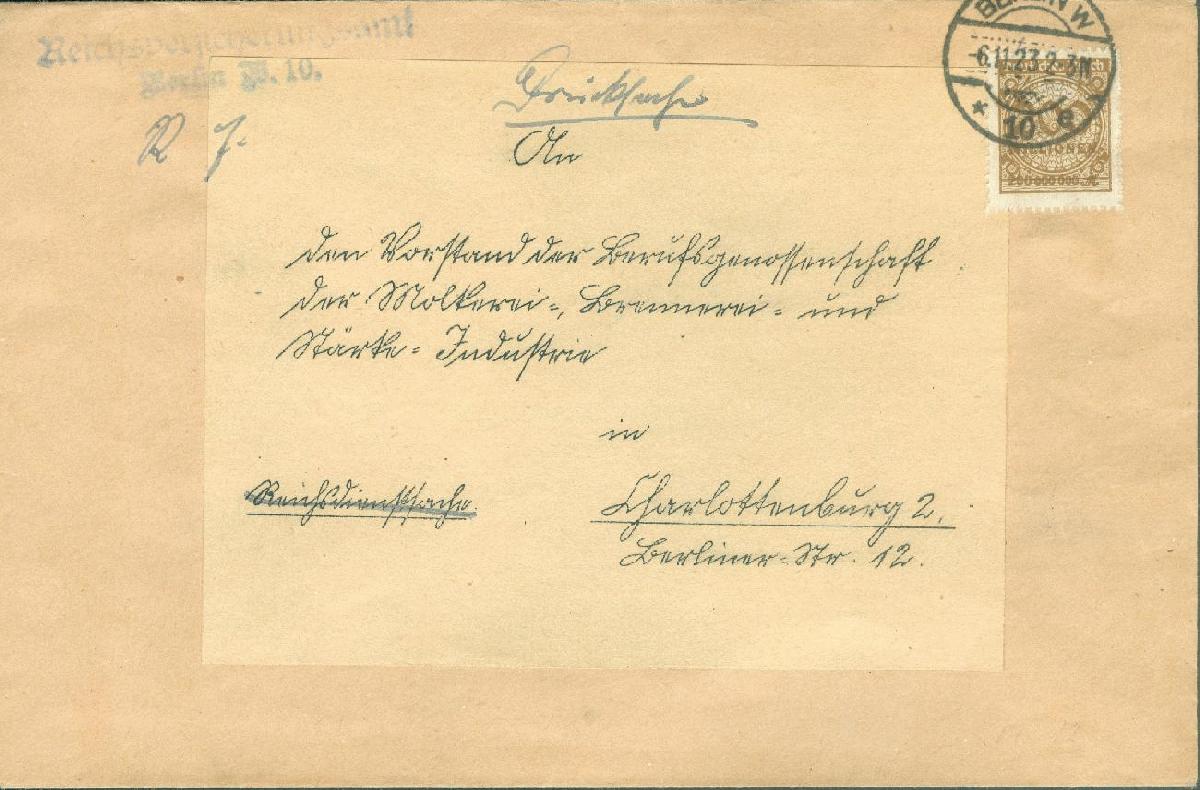 Reichsversicherungsamt
Berlin W. 10.
Drucksache
An
den Vorstand der Berufsgenossenschaft
der Molkerei-, Brennerei- und
Stärke-Industrie
in
Reichsdienstsache.
Charlottenburg 2.
Berliner-Str. 12.
BERLIN W
6.11.23.2-3N
* 10 e
MILLIONEN
200 000 000 M